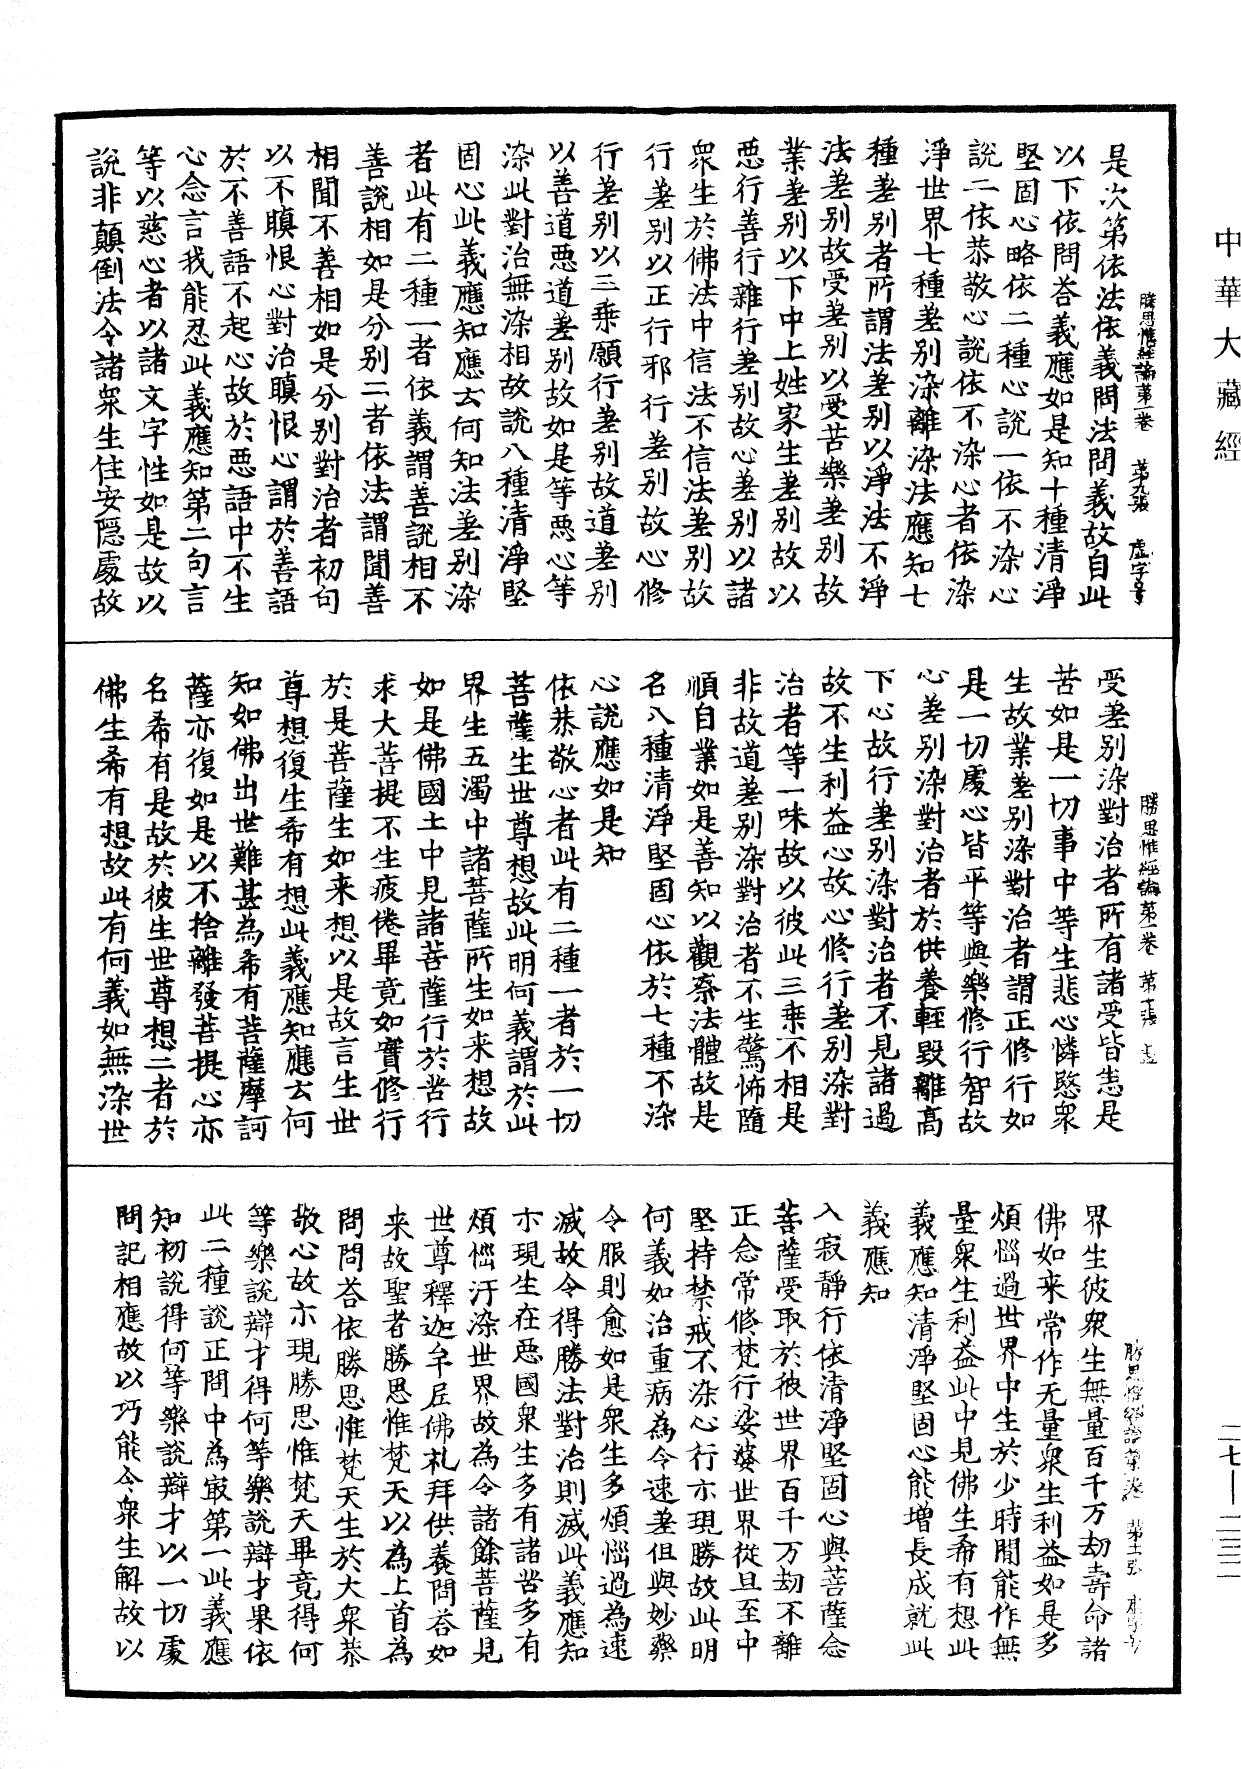 中華大藏經
勝思惟經論第一卷 第九張 虛字号
是次第依法依義問法問義故自此
以下依問荅義應如是知十種清淨
堅固心略依二種心說一依不染心
說二依恭敬心說依不染心者依染
淨世界七種差別染離染法應知七
種差別者所謂法差別以淨法不淨
法差別故受差別以受苦樂差別故
業差別以下中上姓家生差別故以
惡行善行雜行差別故心差別以諸
衆生於佛法中信法不信法差別故
行差別以正行邪行差別故心修
行差別以三乘願行差別故道差別
以善道惡道差別故如是等惡心等
染此對治無染相故說八種清淨堅
固心此義應知應云何知法差別染
者此有二種一者依義謂善說相不
善說相如是分別二者依法謂聞善
相聞不善相如是分別對治者初句
以不瞋恨心對治瞋恨心謂於善語
於不善語不起心故於惡語中不生
心念言我能忍此義應知第二句言
等以慈心者以諸文字性如是故以
說非顛倒法令諸衆生住安隱處故
勝思惟經論第一卷 第十張
受差別染對治者所有諸受皆恚是
苦如是一切事中等生悲心憐愍衆
生故業差別染對治者謂正修行如
是一切處心皆平等與樂修行智故
心差別染對治者於供養輕毀離高
下心故行差別染對治者不見諸過
故不生利益心故心修行差別染對
治者等一味故以彼此三乘不相是
非故道差別染對治者不生驚怖隨
順自業如是善知以觀察法體故是
名八種清淨堅固心依於七種不染
心說應如是知
依恭敬心者此有二種一者於一切
菩薩生世尊想故此明何義謂於此
界生五濁中諸菩薩所生如来想故
如是佛國土中見諸菩薩行於苦行
求大菩提不生疲倦畢竟如實修行
於是菩薩生如来想以是故言生世
尊想復生希有想此義應知應云何
知如佛出世難甚為希有菩薩摩訶
薩亦復如是以不捨離發菩提心亦
名希有是故於彼生世尊想二者於
佛生希有想故此有何義如無染世
界生彼衆生無量百千万劫壽命諸
佛如来常作无量衆生利益如是多
煩惱過世界中生於少時間能作無
量衆生利益此中見佛生希有想此
義應知清淨堅固心能增長成就此
義應知
入寂靜行依清淨堅固心與菩薩念
菩薩受取於彼世界百千万劫不離
正念常修梵行娑婆世界從旦至中
堅持禁戒不染心行亦現勝故此明
何義如治重病為令速差但與妙藥
令服則愈如是衆生多煩惱過為速
滅故令得勝法對治則滅此義應知
亦現生在惡國衆生多有諸苦多有
煩惱汙染世界故為令諸餘菩薩見
世尊釋迦牟尼佛礼拜供養問荅如
来故聖者勝思惟梵天以為上首為
問問荅依勝思惟梵天生於大衆恭
敬心故亦現勝思惟梵天畢竟得何
等樂說辯才得何等樂說辯才果依
此二種說正問中為㝡第一此義應
知初說得何等樂說辯才以一切處
問記相應故以巧能令衆生解故以
二七—二三二